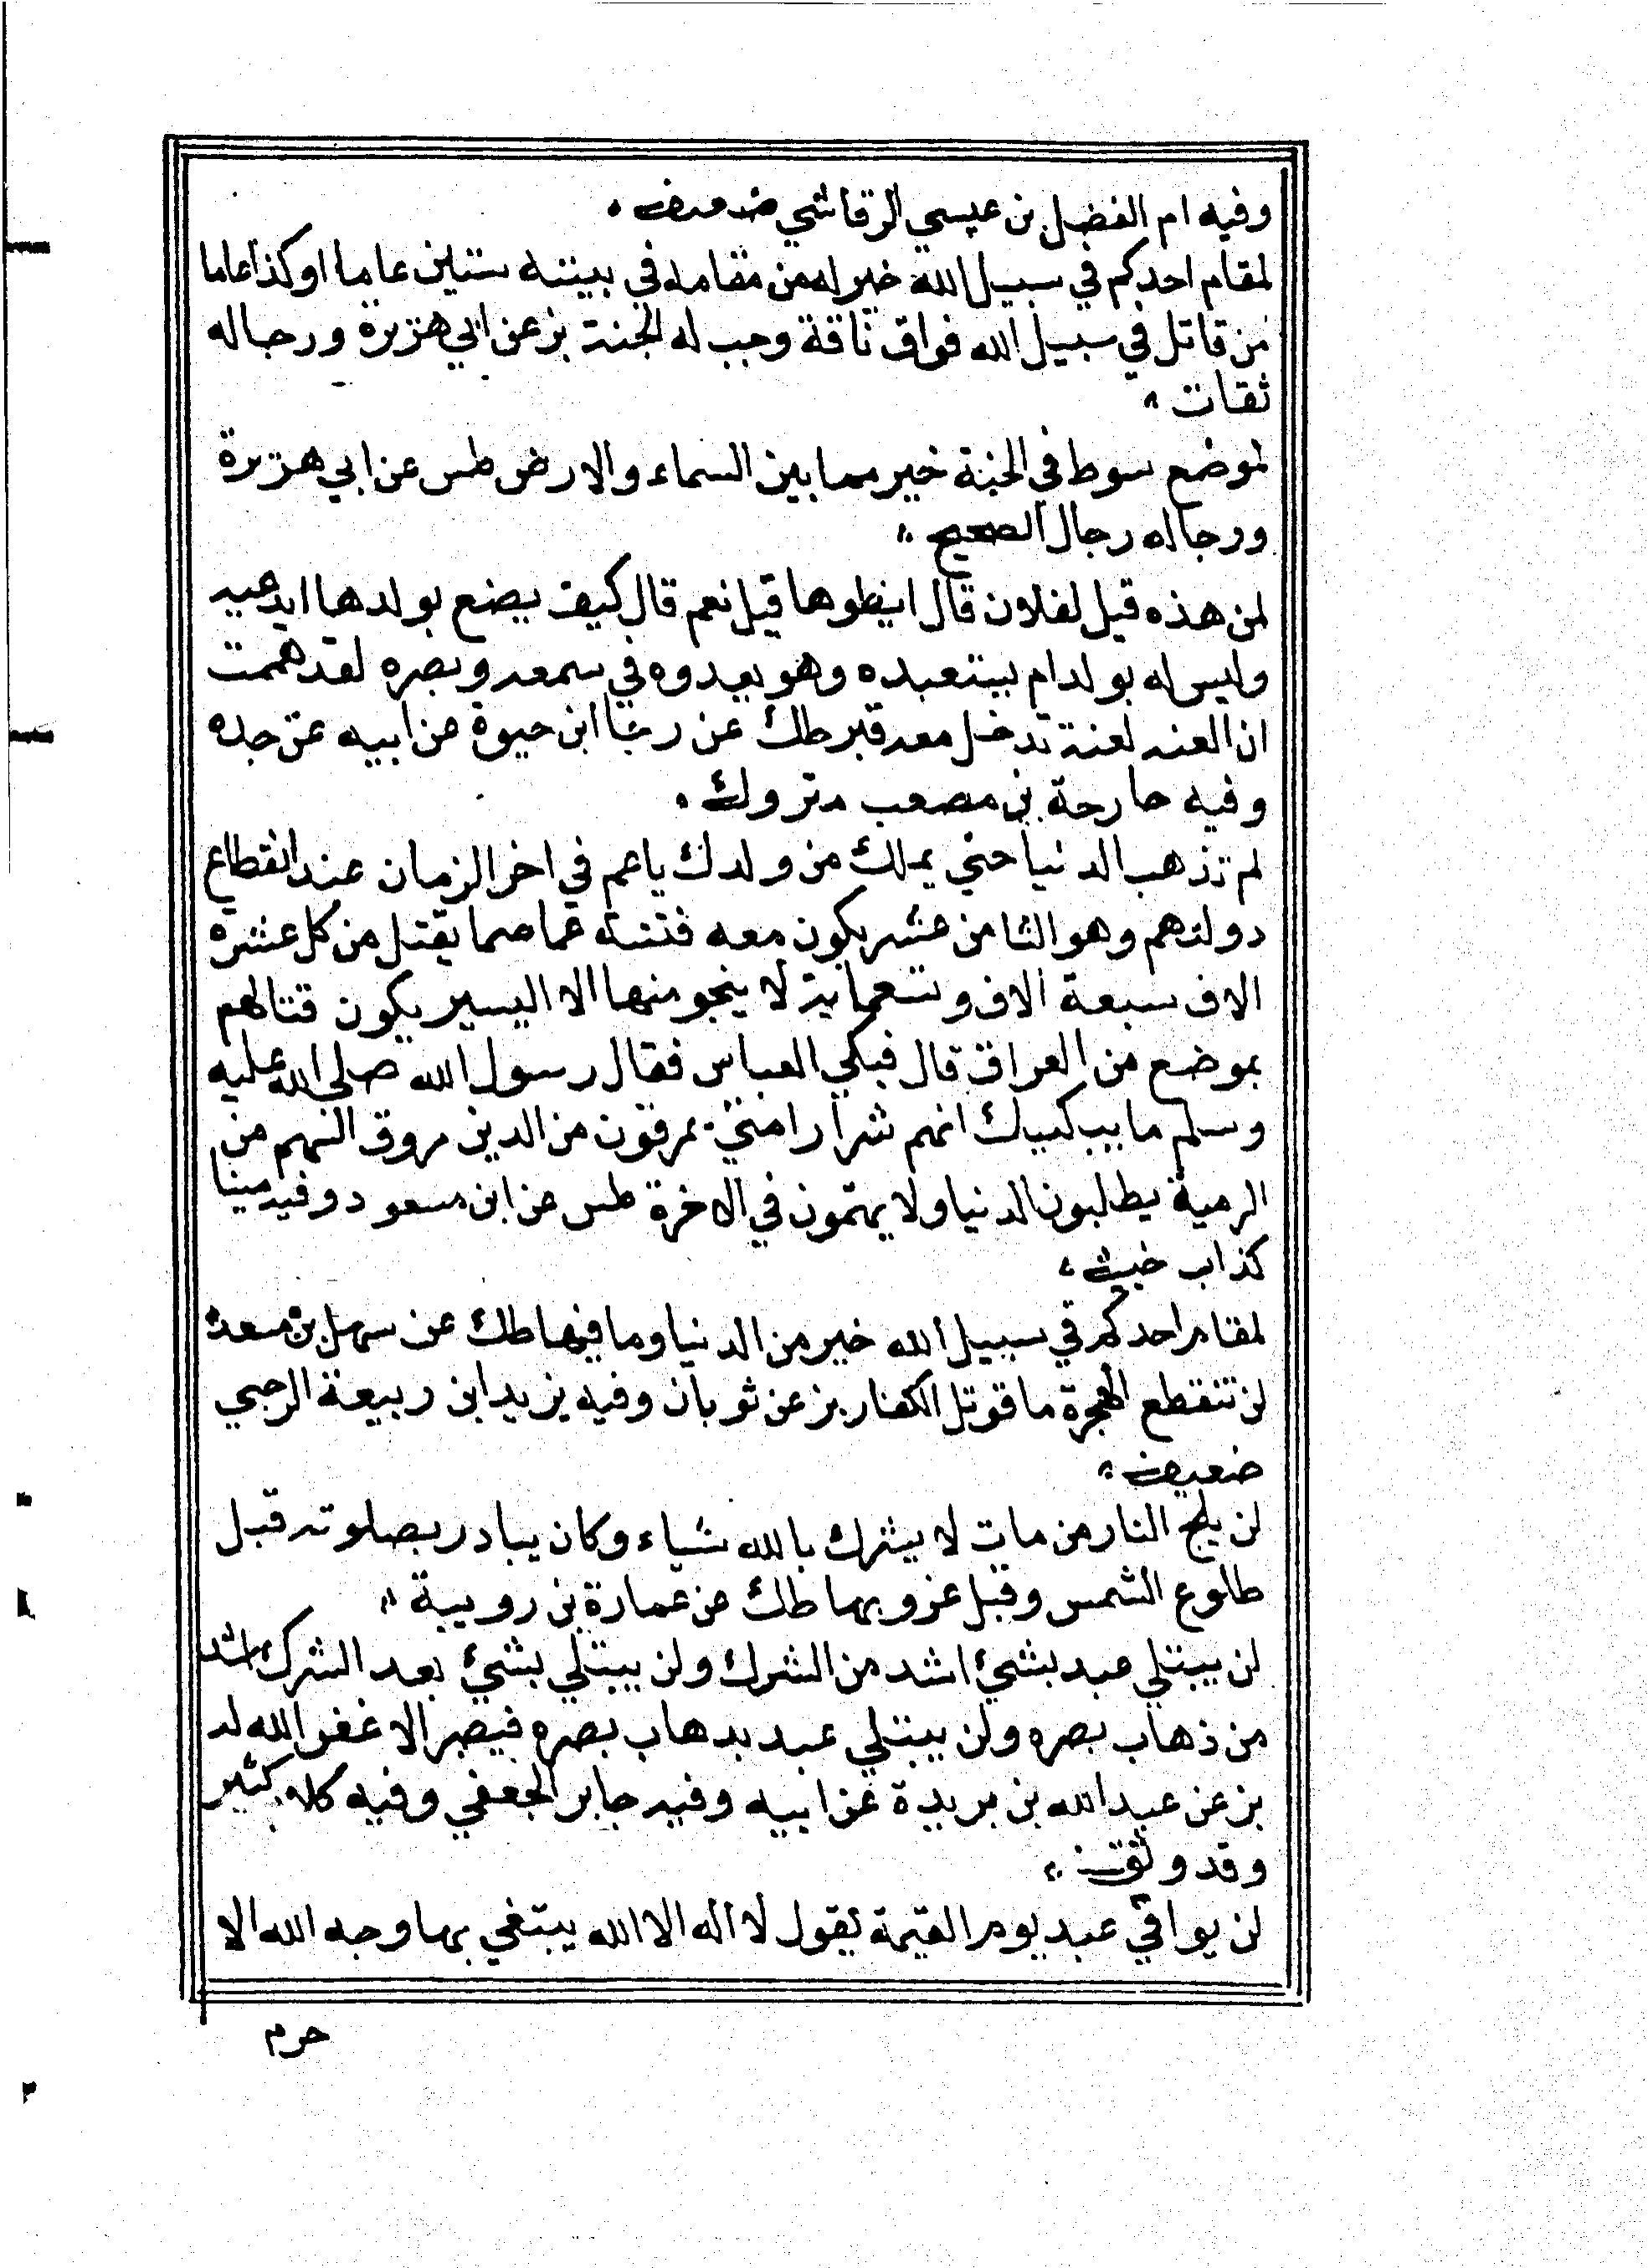 وفيه ام الفضل بن عيسي الرقاشي ضعيف
لمقام احدكم في سبيل الله خير له من مقامه في بيته ستين عاما او كذا عاما
من قاتل في سبيل الله فواق ناقة وجب له الجنة بز عن ابي هريرة ورجاله
ثقات
لموضع سوط في الجنة خير مما بين السماء والارض طس عن ابي هريرة
ورجاله رجال الصحيح
لمن هذه قيل لفلان قال ايطوها قيل نعم قال كيف يصنع بولدها ايدعيه
وليس له بولد ام يستعبده وهو يعدوه في سمعه وبصره لقد هممت
ان العنه لعنة تدخل معه قبر طك عن رجا ابن حيوة عن ابيه عن جده
وفيه خارجة بن مصعب متروك
لم تذهب الدنيا حتي يملك من ولدك يا عم في اخر الزمان عند انقطاع
دولتهم وهو الثامن عشر يكون معه فتنة عما صما يقتل من كل عشره
الاف سبعة الاف وتسعماية لا ينجو منها الا اليسير يكون قتالهم
بموضع من العراق قال فبكي العباس فقال رسول الله صلي الله عليه
وسلم ما يبكيك انهم شرار امتي يمرقون من الدين مروق السهم من
الرمية يطلبون الدنيا ولا يهتمون في الاخرة طس عن ابن مسعود وفيه مينا
كذاب خبيث
لمقام احدكم في سبيل الله خير من الدنيا وما فيها طك عن سهل بن سعد
لن تنقطع الهجرة ما قوتل الكفار بز عن ثوبان وفيه يزيد ابن ربيعة الرحبي
ضعيف
لن يلج النار من مات لا يشرك بالله شياء وكان يبادر بصلوته قبل
طلوع الشمس وقبل غروبها طك عن عمارة بن رويبة
لن يبتلي عبد بشيئ اشد من الشرك ولن يبتلي بشيئ بعد الشرك اشد
من ذهاب بصره ولن يبتلي عبد بدهاب بصره فيصبر الا غفر الله له
بز عن عبد الله بن بريدة عن ابيه وفيه جابر الجعفي وفيه كلام كثير
وقد وثق
لن يوافي عبد يوم القيمة يقول لا اله الا الله يبتغي بها وجه الله الا
حرم